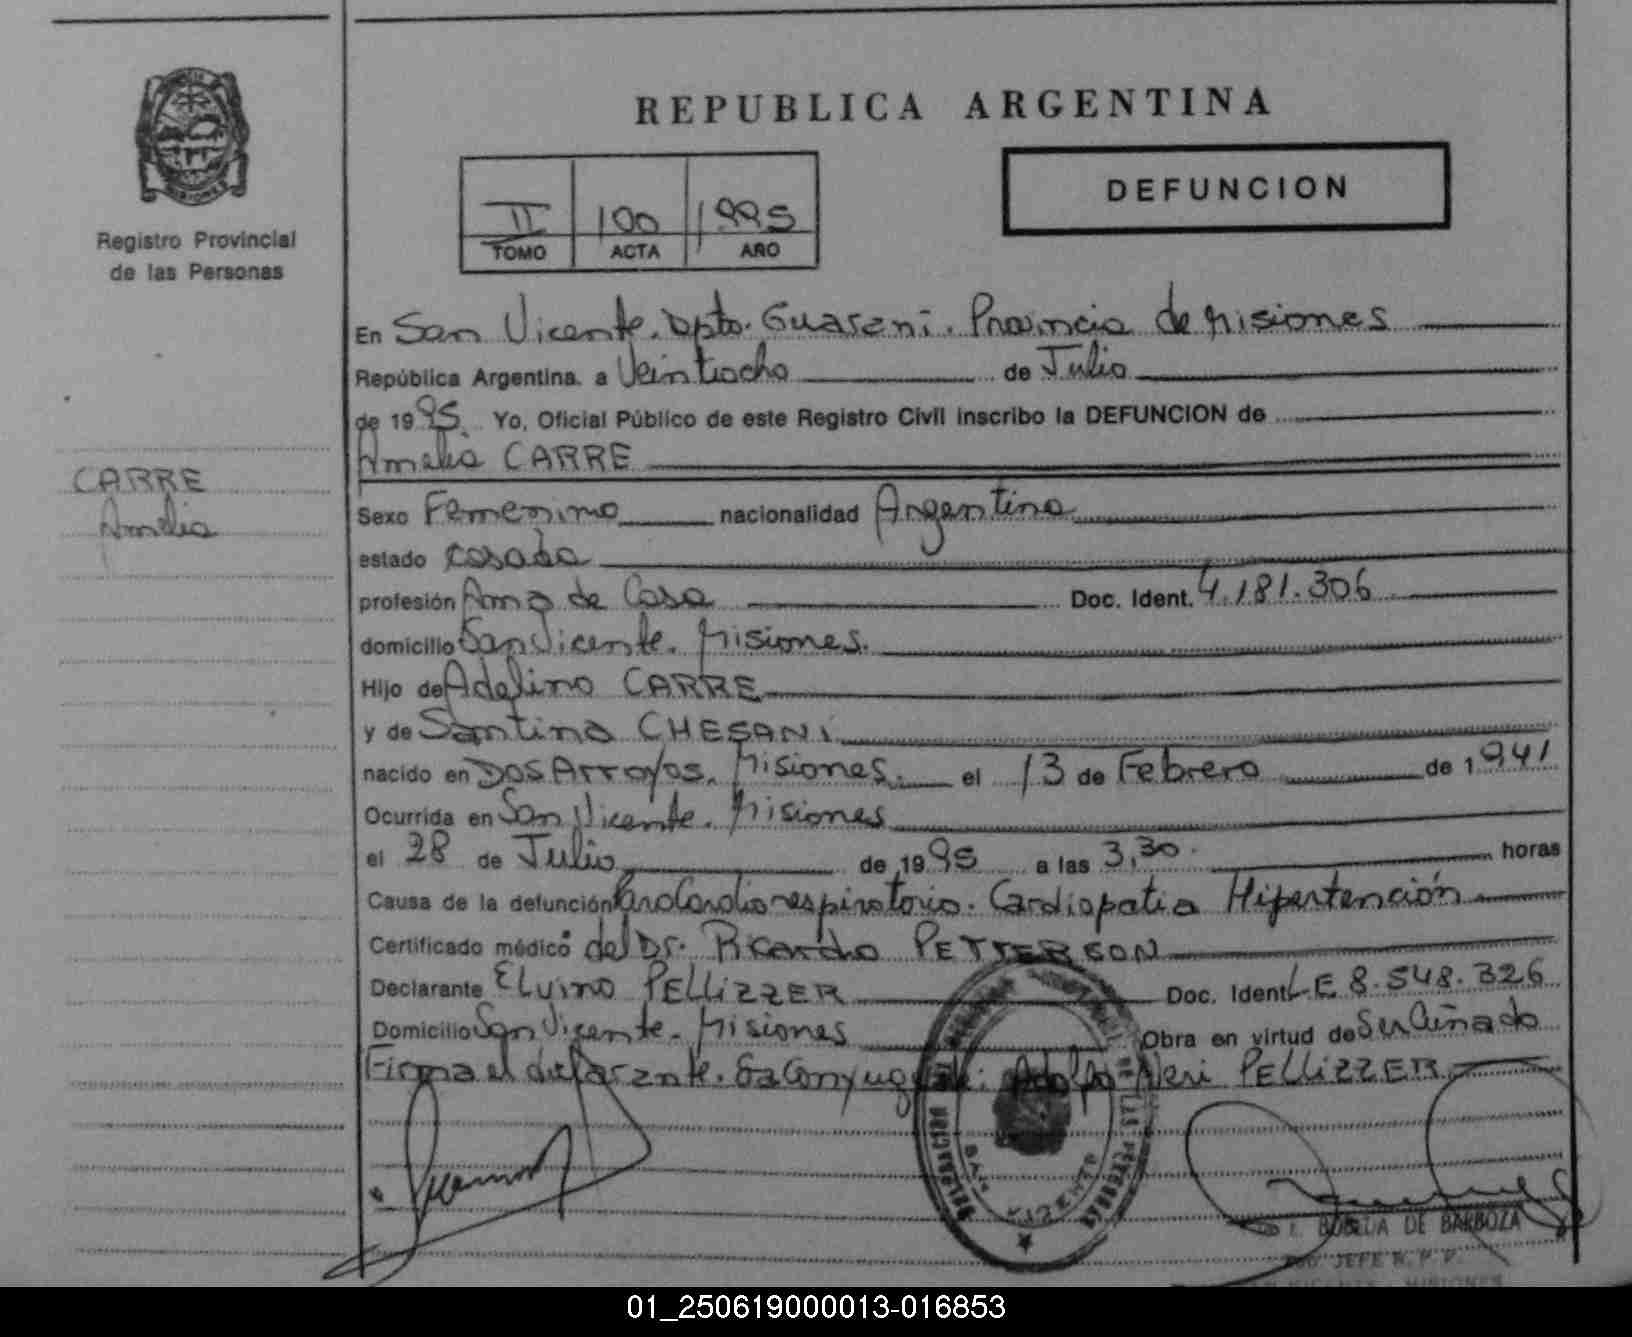 REPUBLICA ARGENTINA
DEFUNCION
II 100 1995
TOMO ACTA AÑO
Registro Provincial
de las Personas
MISIONES
CARRE
Amelia
En San Vicente. Dpto. Guaraní. Provincia de Misiones
República Argentina. a Veintiocho de Julio
de 1995. Yo, Oficial Público de este Registro Civil inscribo la DEFUNCION de
Amelia CARRE
Sexo Femenino nacionalidad Argentina
estado casada
profesión Ama de Casa Doc. Ident. 4.181.306
domicilio San Vicente. Misiones.
Hijo de Adelino CARRE
y de Santina CHESANI
nacido en Dos Arroyos. Misiones. el 13 de Febrero de 1941
Ocurrida en San Vicente. Misiones
el 28 de Julio de 1995 a las 3,30. horas
Causa de la defunción Paro Cardiorespiratorio. Cardiopatia Hipertención
Certificado médico del Dr. Ricardo PETTERSON
Declarante Elvino PELLIZZER Doc. Ident L.E 8.548.326
Domicilio San Vicente. Misiones Obra en virtud de Ser Cuñado
Firma el declarante. Adolfo Neri PELLIZZER
SAN VICENTE
DE LAS PERSONAS
BOBEDA DE BARBOZA
JEFE R. P. P.
MISIONES
01_250619000013-016853